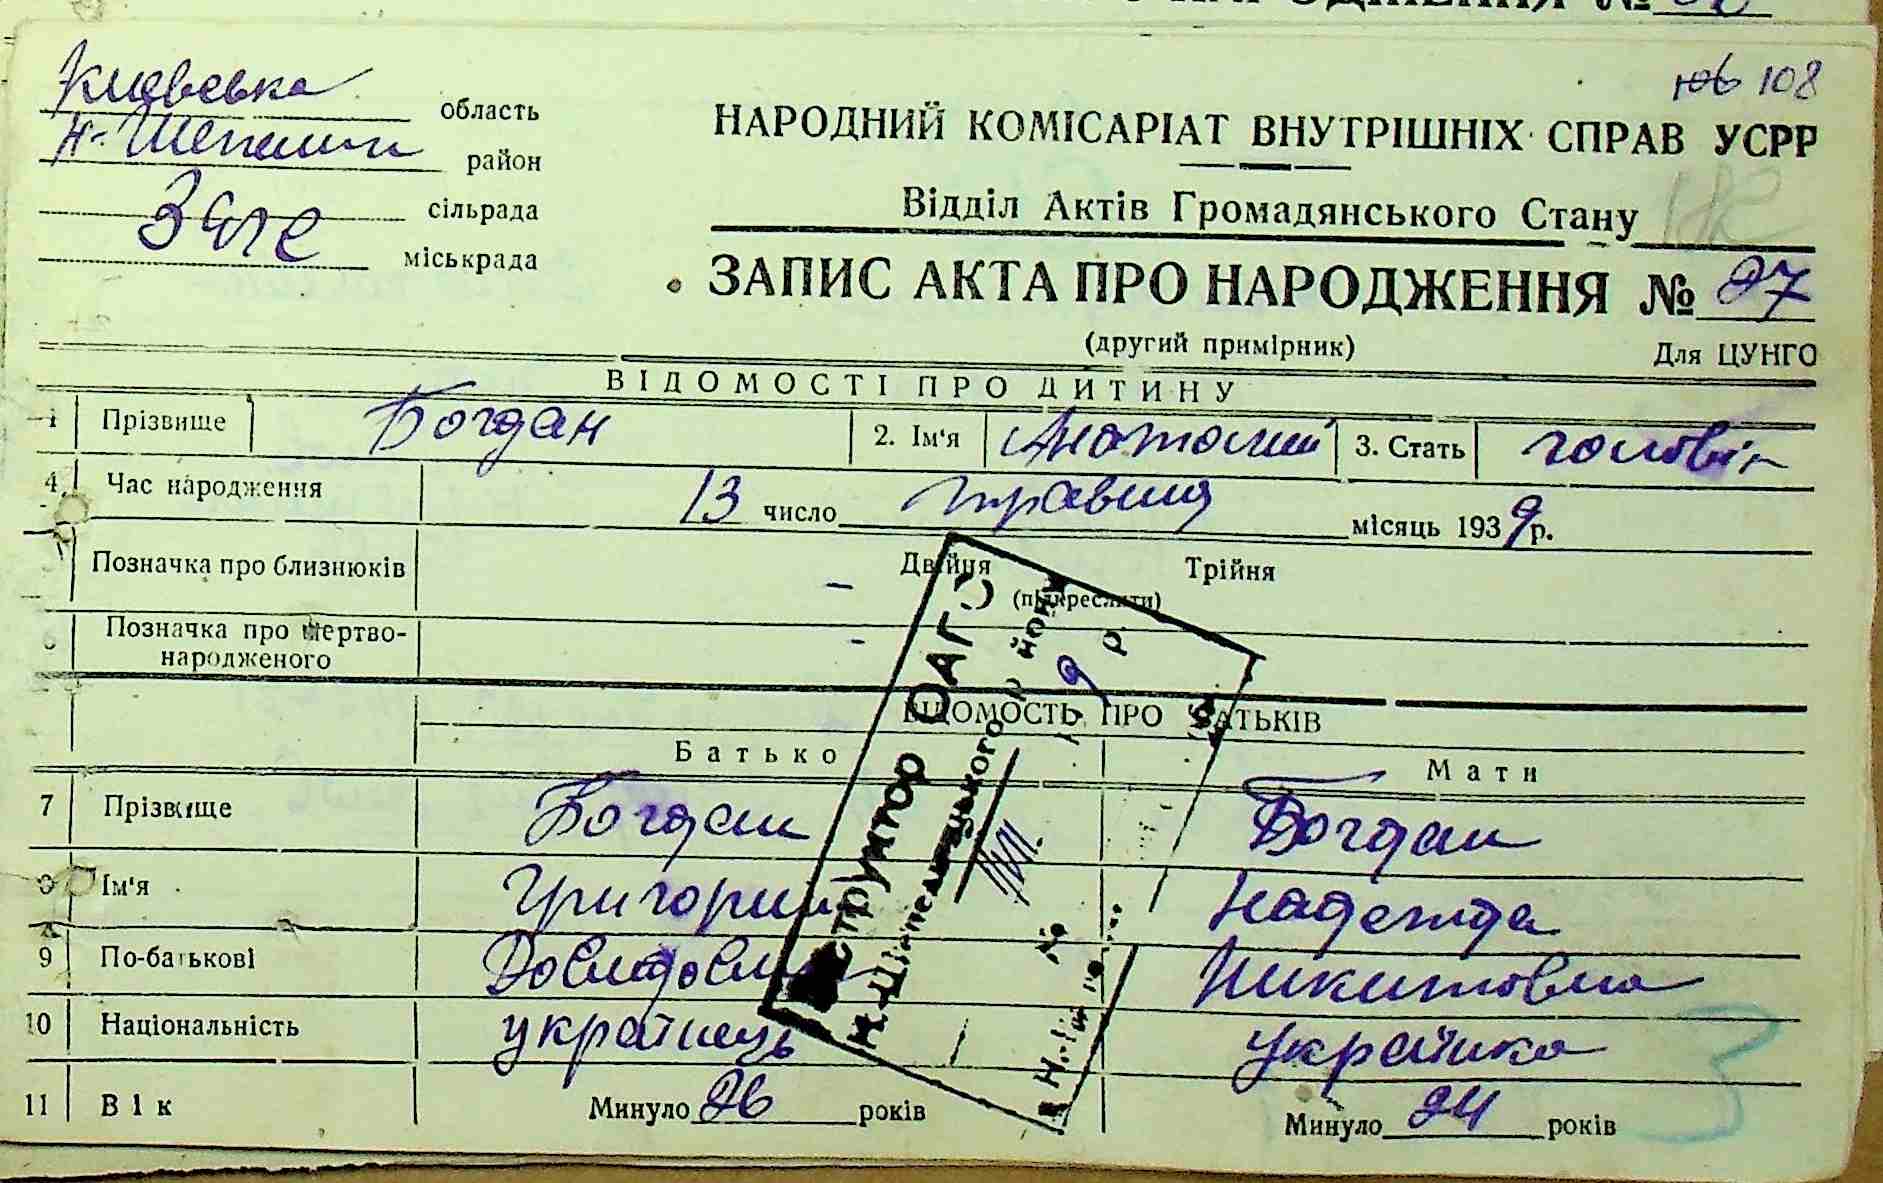 Київська область
Н-Шепелич район
сільрада
міськрада
106 108
НАРОДНИЙ КОМІСАРІАТ ВНУТРІШНІХ СПРАВ УСРР
Відділ Актів Громадянського Стану
ЗАПИС АКТА ПРО НАРОДЖЕННЯ № 27
(другий примірник) Для ЦУНГО
ВІДОМОСТІ ПРО ДИТИНУ
1 Прізвище Богдан 2. Ім'я Анатолий 3. Стать чоловік
4 Час народження 13 число травня місяць 1939 р.
Позначка про близнюків - Двійня Трійня
(підкреслити)
Позначка про мертво-
народженого -
ВІДОМОСТЬ ПРО БАТЬКІВ
Батько Мати
7 Прізвище Богдан Богдан
8 Ім'я Григорий Надежда
9 По-батькові Никитовна
10 Національність українець українка
11 Вік Минуло 26 років Минуло 24 років